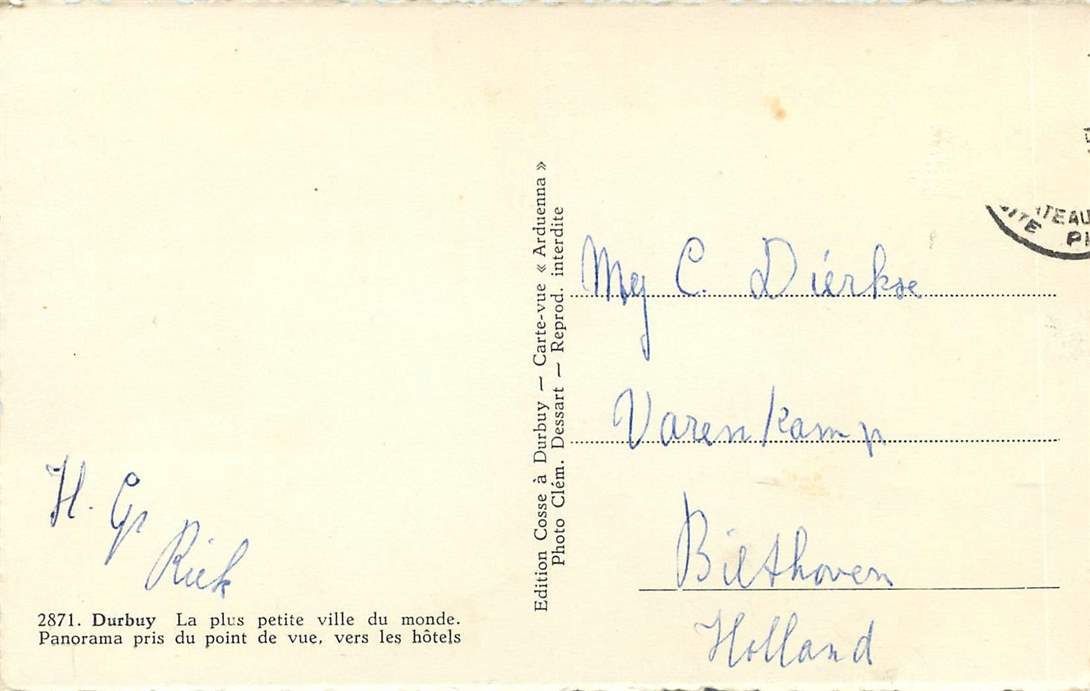 H. Gr
Riek
2871. Durbuy La plus petite ville du monde.
Panorama pris du point de vue, vers les hôtels
Edition Cosse à Durbuy — Carte-vue « Arduenna »
Photo Clém. Dessart — Reprod. interdite
Mej C. Diérkse
Varenkamp
Bilthoven
Holland